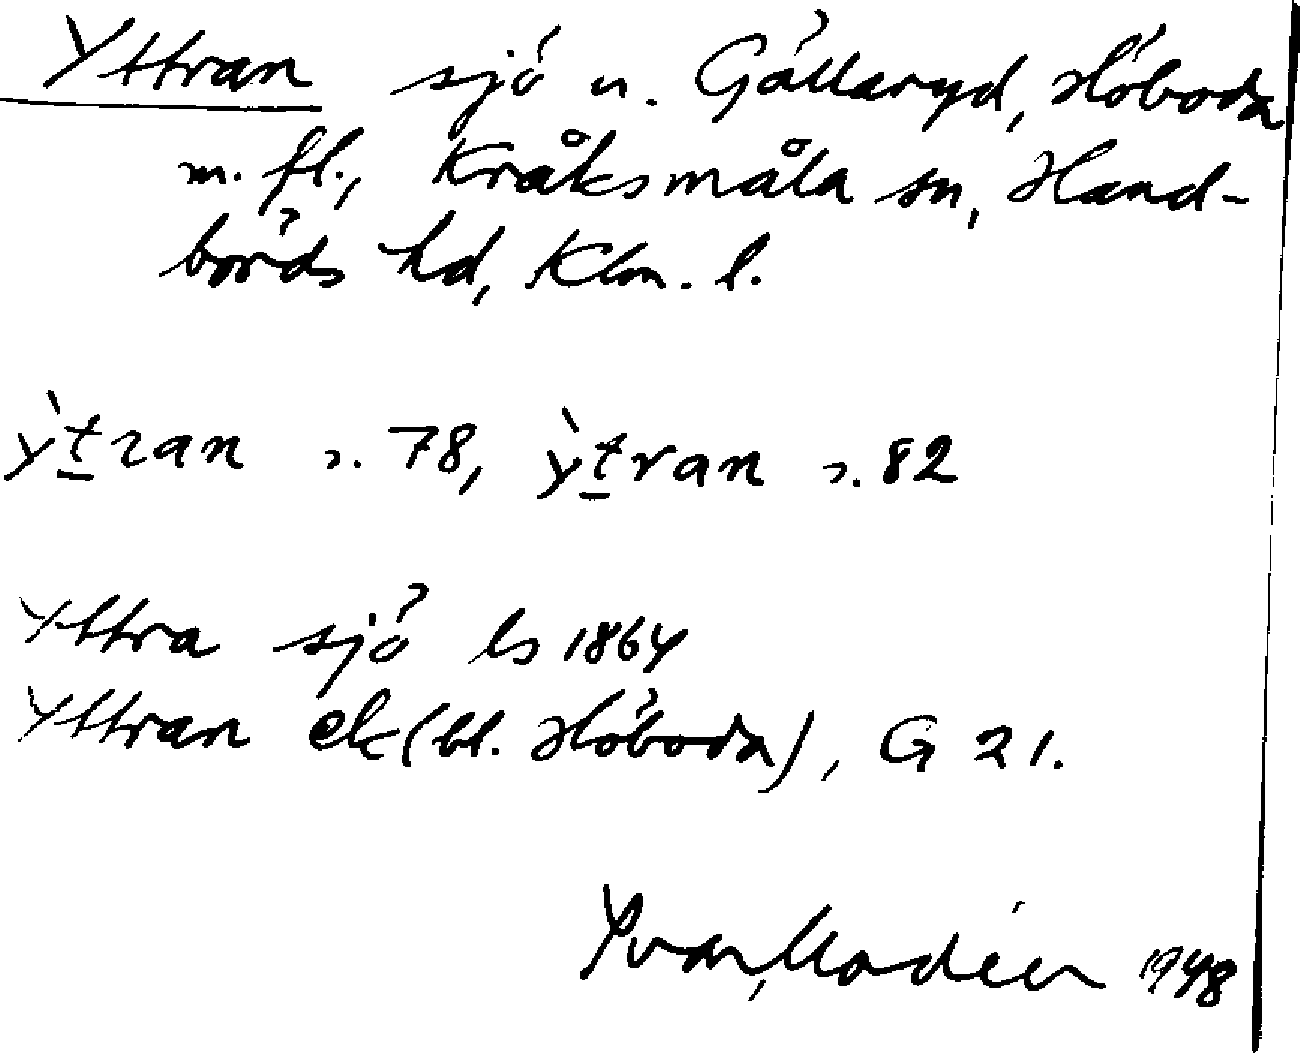 Yttran sjö u. Göllaryd, Höboda
m. fl., Kråksmåla sn, Hand-
börds hd, Klm. l.
ỳt̲ran s. 78, ỳt̲ran s. 82
Yttra sjö ls 1864
Yttran ek (bl. Höboda), G 21.
Yvar Modéer 1948